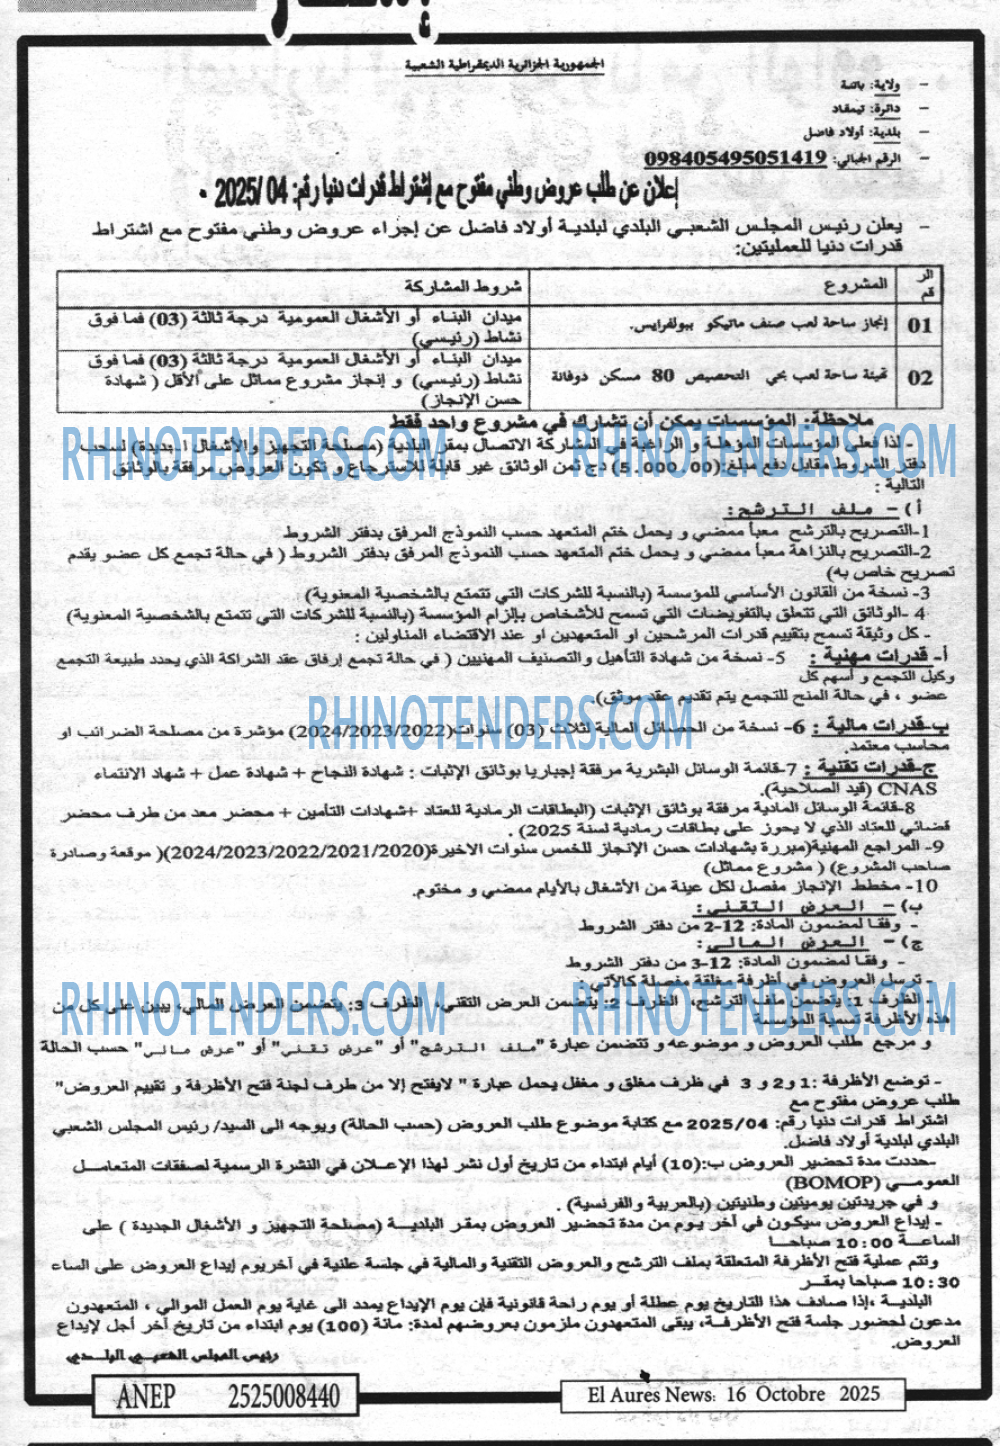 الجمهورية الجزائرية الديمقراطية الشعبية
- ولاية: باتنة
- دائرة: تيمقاد
- بلدية: أولاد فاضل
- الرقم الجبائي: 098405495051419
إعلان عن طلب عروض وطني مفتوح مع إشتراط قدرات دنيا رقم: 04 /2025 .
- يعلن رئيس المجلس الشعبي البلدي لبلدية أولاد فاضل عن إجراء عروض وطني مفتوح مع اشتراط
قدرات دنيا للعمليتين:
الرقم المشروع شروط المشاركة
01 إنجاز ساحة لعب صنف ماتيكو ببولفرايس. ميدان البناء أو الأشغال العمومية درجة ثالثة (03) فما فوق
نشاط (رئيسي)
02 تهيئة ساحة لعب بحي التحصيص 80 مسكن دوفانة ميدان البناء أو الأشغال العمومية درجة ثالثة (03) فما فوق
نشاط (رئيسي) و إنجاز مشروع مماثل على الأقل ( شهادة
حسن الإنجاز)
ملاحظة: المؤسسات يمكن أن تشارك في مشروع واحد فقط
- لذا فعلى المؤسسات المؤهلة و الراغبة في المشاركة الاتصال بمقر البلدية (مصلحة التجهيز والأشغال الجديدة) لسحب
دفتر الشروط مقابل دفع مبلغ:(5.000,00) دج ثمن الوثائق غير قابلة للاسترجاع و تكون العروض مرفقة بالوثائق
التالية :
أ)- ملف الترشح:
1-التصريح بالترشح معبأ ممضي و يحمل ختم المتعهد حسب النموذج المرفق بدفتر الشروط
2-التصريح بالنزاهة معبأ ممضي و يحمل ختم المتعهد حسب النموذج المرفق بدفتر الشروط ( في حالة تجمع كل عضو يقدم
تصريح خاص به)
3- نسخة من القانون الأساسي للمؤسسة (بالنسبة للشركات التي تتمتع بالشخصية المعنوية)
4 -الوثائق التي تتعلق بالتفويضات التي تسمح للأشخاص بإلزام المؤسسة (بالنسبة للشركات التي تتمتع بالشخصية المعنوية)
- كل وثيقة تسمح بتقييم قدرات المرشحين او المتعهدين او عند الاقتضاء المناولين :
أ- قدرات مهنية : 5- نسخة من شهادة التأهيل والتصنيف المهنيين ( في حالة تجمع إرفاق عقد الشراكة الذي يحدد طبيعة التجمع
وكيل التجمع و أسهم كل
عضو ، في حالة المنح للتجمع يتم تقديم عقد موثق)
ب-قدرات مالية : 6- نسخة من الحصائل المالية لثلاث (03) سنوات(2024/2023/2022) مؤشرة من مصلحة الضرائب او
محاسب معتمد.
ج-قدرات تقنية : 7-قائمة الوسائل البشرية مرفقة إجباريا بوثائق الإثبات : شهادة النجاح + شهادة عمل + شهاد الانتماء
CNAS (قيد الصلاحية).
8-قائمة الوسائل المادية مرفقة بوثائق الإثبات (البطاقات الرمادية للعتاد +شهادات التأمين + محضر معد من طرف محضر
قضائي للعتاد الذي لا يحوز على بطاقات رمادية لسنة 2025) .
9- المراجع المهنية(مبررة بشهادات حسن الإنجاز للخمس سنوات الاخيرة(2024/2023/2022/2021/2020)( موقعة وصادرة
صاحب المشروع) ( مشروع مماثل)
10- مخطط الإنجاز مفصل لكل عينة من الأشغال بالأيام ممضي و مختوم.
ب)- العرض التقني:
- وفقا لمضمون المادة: 12-2 من دفتر الشروط
ج)- العرض المالي:
- وفقا لمضمون المادة: 12-3 من دفتر الشروط
- ترسل العروض في أظرفة مغلقة مفصلة كالآتي:
- الظرف 1: يتضمن ملف الترشح، الظرف 2: يتضمن العرض التقني، الظرف 3: يتضمن العرض المالي، يبين على كل من
هذه الأظرفة تسمية المؤسسة
و مرجع طلب العروض و موضوعه و تتضمن عبارة "ملف الترشح" أو "عرض تقني" أو "عرض مالي" حسب الحالة
- توضع الأظرفة :1 و2 و 3 في ظرف مغلق و مغفل يحمل عبارة " لايفتح إلا من طرف لجنة فتح الأظرفة و تقييم العروض"
طلب عروض مفتوح مع
اشتراط قدرات دنيا رقم: 2025/04 مع كتابة موضوع طلب العروض (حسب الحالة) ويوجه الى السيد/ رئيس المجلس الشعبي
البلدي لبلدية أولاد فاضل.
-حددت مدة تحضير العروض ب:(10) أيام ابتداء من تاريخ أول نشر لهذا الإعلان في النشرة الرسمية لصفقات المتعامل
العمومي (BOMOP)
و في جريدتين يوميتين وطنيتين (بالعربية والفرنسية) .
- إيداع العروض سيكون في آخر يوم من مدة تحضير العروض بمقر البلدية (مصلحة التجهيز و الأشغال الجديدة ) على
الساعة 10:00 صباحا
وتتم عملية فتح الأظرفة المتعلقة بملف الترشح والعروض التقنية والمالية في جلسة علنية في آخريوم إيداع العروض على الساعة
10:30 صباحا بمقر
البلدية ،إذا صادف هذا التاريخ يوم عطلة أو يوم راحة قانونية فإن يوم الإيداع يمدد الى غاية يوم العمل الموالي ، المتعهدون
مدعون لحضور جلسة فتح الأظرفة، يبقى المتعهدون ملزمون بعروضهم لمدة: مائة (100) يوم ابتداء من تاريخ آخر أجل لإيداع
العروض.
رئيس المجلس الشعبي البلدي
ANEP 2525008440
El Aures News: 16 Octobre 2025
RHINOTENDERS.COM
RHINOTENDERS.COM
RHINOTENDERS.COM
RHINOTENDERS.COM
RHINOTENDERS.COM